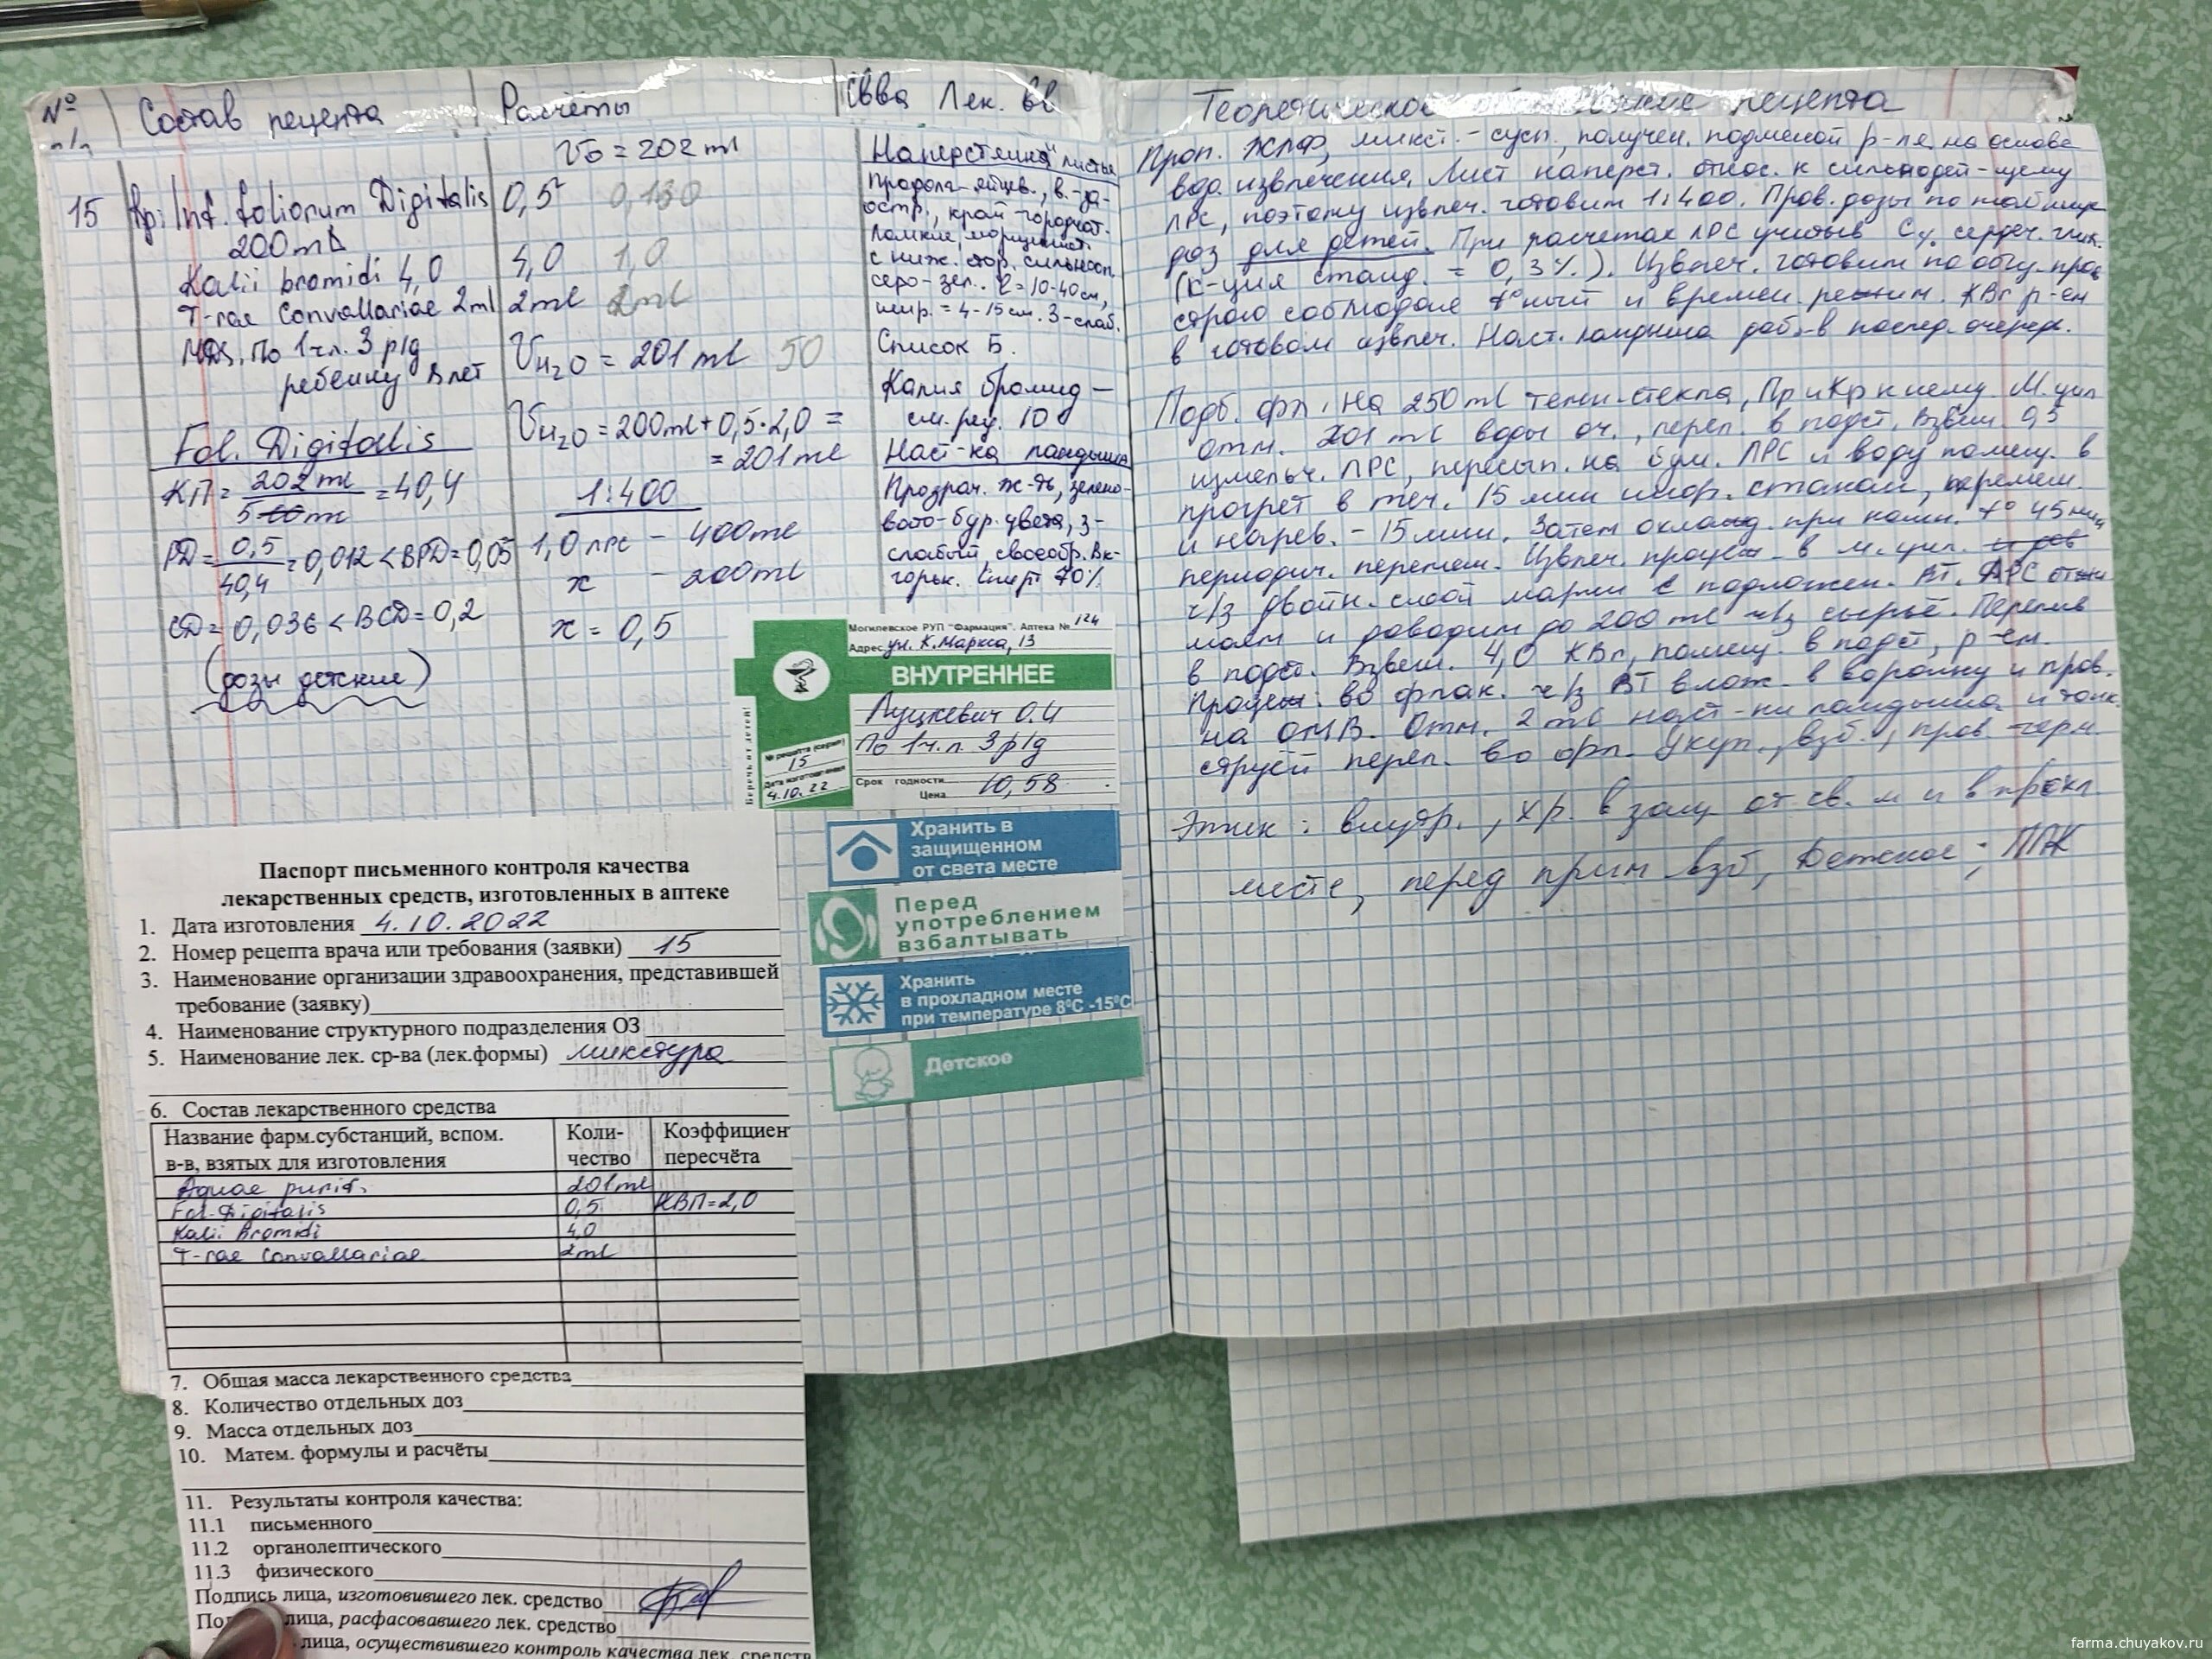 № п/п
Состав рецепта
Расчёты
Св-ва Лек. вв
Теоретическое рецепта
15
Rp: Inf. foliorum Digitalis
200ml
Kalii bromidi 4,0
T-rae Convallariae 2ml
MDS. По 1 ч.л. 3 р/д
ребенку 8 лет
Fol. Digitalis
КП = 202 ml / 5 ml = 40,4
РД = 0,5 / 40,4 = 0,012 < ВРД = 0,05
СД = 0,036 < ВСД = 0,2
(дозы детские)
Vо = 202 ml
0,5 0,130
4,0 1,0
2ml 2ml
VH2O = 201 ml 50
VH2O = 200ml + 0,5·2,0 =
= 201ml
1:400
1,0 ЛРС – 400ml
x – 200ml
x = 0,5
Наперстянка листья
Продолг-яйцев., в.-за-
остр., край-городчат.
Ломкие, морщинист.
с ниж. стор. сильноoп.
серо-зел. ℓ = 10-40см,
шир. = 4-15 см. З-слаб.
Список Б.
Калия бромид –
см. рец. 10
Наст-ка ландыша
Прозрач. ж-ть, зелено-
вато-бур. цвета, з-
слабый, своеобр. Вк-
горьк. Спирт 70%.
Проп. ЖЛФ, микст.-сусп., получен. подменой р-ля, на основе
вод. извлечения. Лист наперст. относ. к сильнодей-щему
ЛРС, поэтому извлеч. готовим 1:400. Пров. дозы по таблице
доз для детей. При расчетах ЛРС учитыв сердеч. глик.
(к-ция станд. = 0,3%). Извлеч. готовим по общ. прав
строго соблюдая t°ный и времен. режим. KBr р-ем
в готовом извлеч. Наст. ландыша доб-в послед. очеред.
Подб. фл. На 250 ml темн. стекла, Пр и Кр к нему. М. цил
отм. 201 ml воды оч., перел. в подст. Взвеш. 0,5
измельч. ЛРС, пересып. на бум. ЛРС и воду помещ. в
прогрет в теч. 15 мин инф. стакан, перемеш.
и нагрев. – 15 мин. Затем охлажд. при комн. t° 45 мин
периодич. перемеш. Извлеч. процеж. в м. цил.
ч/з двойн. слой марли с подложен. ВТ. ЛРС отжи
маем и доводим до 200 ml ч/з сырьё. Перелив
в подст. Взвеш. 4,0 KBr, помещ. в подст, р-ем.
Процеж. во флак. ч/з ВТ влож. в воронку и пров.
на ОМВ. Отм. 2 ml наст-ки ландыша и тонк.
струёй перел. во фл. Укуп., взб., пров. герм.
Этик: внутр., хр. в защ от св. м и в прохл.
месте, перед прим взб, Детское; ППК
Могилевское РУП "Фармация". Аптека № 124
Адрес ул. К.Маркса, 13
ВНУТРЕННЕЕ
Луцкевич О.И
По 1 ч.л. 3 р/д
Беречь от детей!
№ рецепта (серия)
15
Дата изготовления
4.10.22
Срок годности
Цена 10,58
Хранить в
защищенном
от света месте
Перед
употреблением
взбалтывать
Хранить
в прохладном месте
при температуре 8°C -15°C
Детское
Паспорт письменного контроля качества
лекарственных средств, изготовленных в аптеке
1. Дата изготовления 4.10.2022
2. Номер рецепта врача или требования (заявки) 15
3. Наименование организации здравоохранения, представившей
требование (заявку)
4. Наименование структурного подразделения ОЗ
5. Наименование лек. ср-ва (лек.формы) микстура
6. Состав лекарственного средства
Название фарм.субстанций, вспом.
в-в, взятых для изготовления
Коли-
чество
Коэффициен
пересчёта
Aquae purif. 201ml
Fol. Digitalis 0,5 КВП=2,0
Kalii bromidi 4,0
T-rae Convallariae 2ml
7. Общая масса лекарственного средства
8. Количество отдельных доз
9. Масса отдельных доз
10. Матем. формулы и расчёты
11. Результаты контроля качества:
11.1 письменного
11.2 органолептического
11.3 физического
Подпись лица, изготовившего лек. средство
лица, расфасовавшего лек. средство
лица, осуществившего контроль качества лек. средств
farma.chuyakov.ru